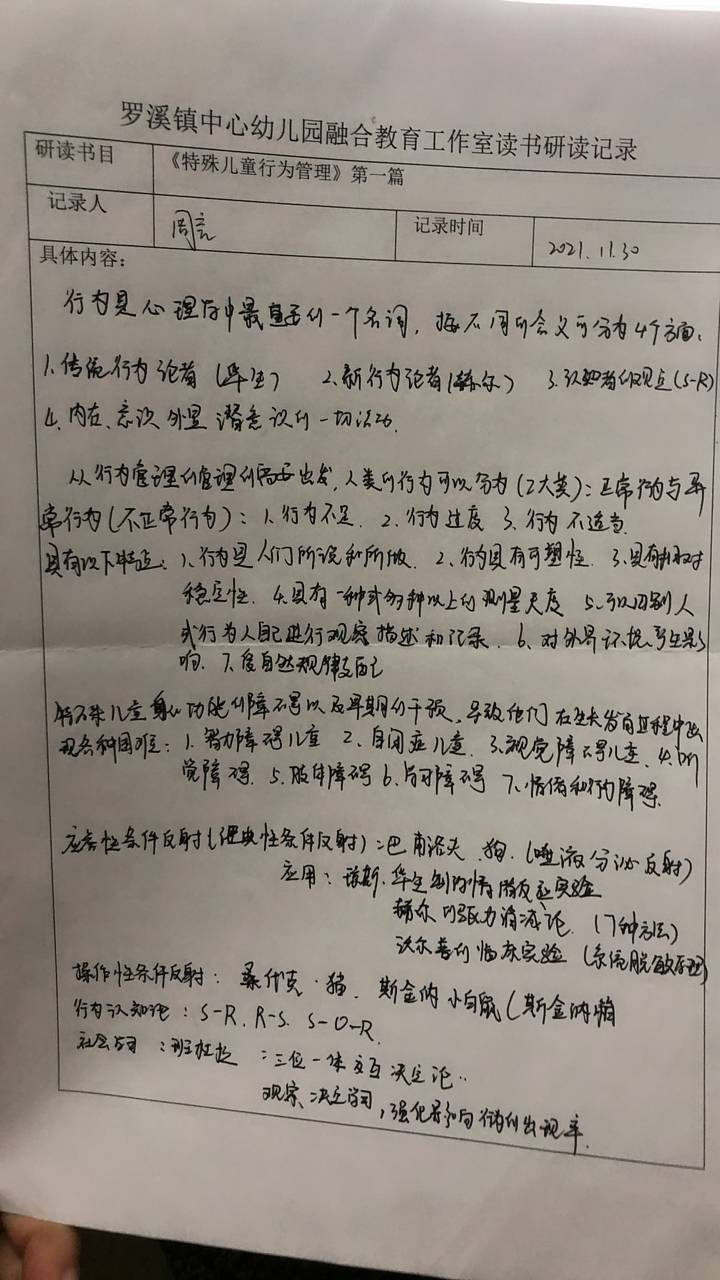 罗溪镇中心幼儿园融合教育工作室读书研读记录
研读书目 《特殊儿童行为管理》第一篇
记录人 周 记录时间 2021.11.30
具体内容：
行为是心理学中最重要的一个名词，按不同的含义可分为4个方面：
1.传统行为论者（华生） 2.新行为论者（赫尔） 3.认知者的观点（S-R）
4.内在、意识 外显 潜意识的一切活动.
从行为管理的管理的需要出发，人类的行为可以分为（2大类）：正常行为与异
常行为（不正常行为）：1.行为不足. 2.行为过度 3.行为不适当.
具有以下特点：1.行为是人们所说和所做. 2.行为具有可塑性. 3.具有相对
稳定性. 4.具有一种或多种以上的测量尺度 5.可以由别人
或行为人自己进行观察描述和记录. 6.对外界环境产生影
响. 7.受自然规律支配
特殊儿童身心功能的障碍以及早期的干预，导致他们在生长发育过程中出
现各种困难：1.智力障碍儿童 2.自闭症儿童. 3.视觉障碍儿童. 4.听
觉障碍. 5.肢体障碍 6.障碍 7.情绪和行为障碍.
应答性条件反射（经典性条件反射）：巴甫洛夫.狗.（唾液分泌反射）
应用：华生 情绪反应实验
赫尔 张力消减论.（7种方法）
沃尔普的临床实验（系统脱敏原理）
操作性条件反射：桑代克·猫. 斯金纳 小白鼠（斯金纳箱
行为认知论：S-R. R-S. S-O-R.
社会学习：班杜拉：三位一体交互决定论..
观察、决定学习，强化影响行为的出现率.